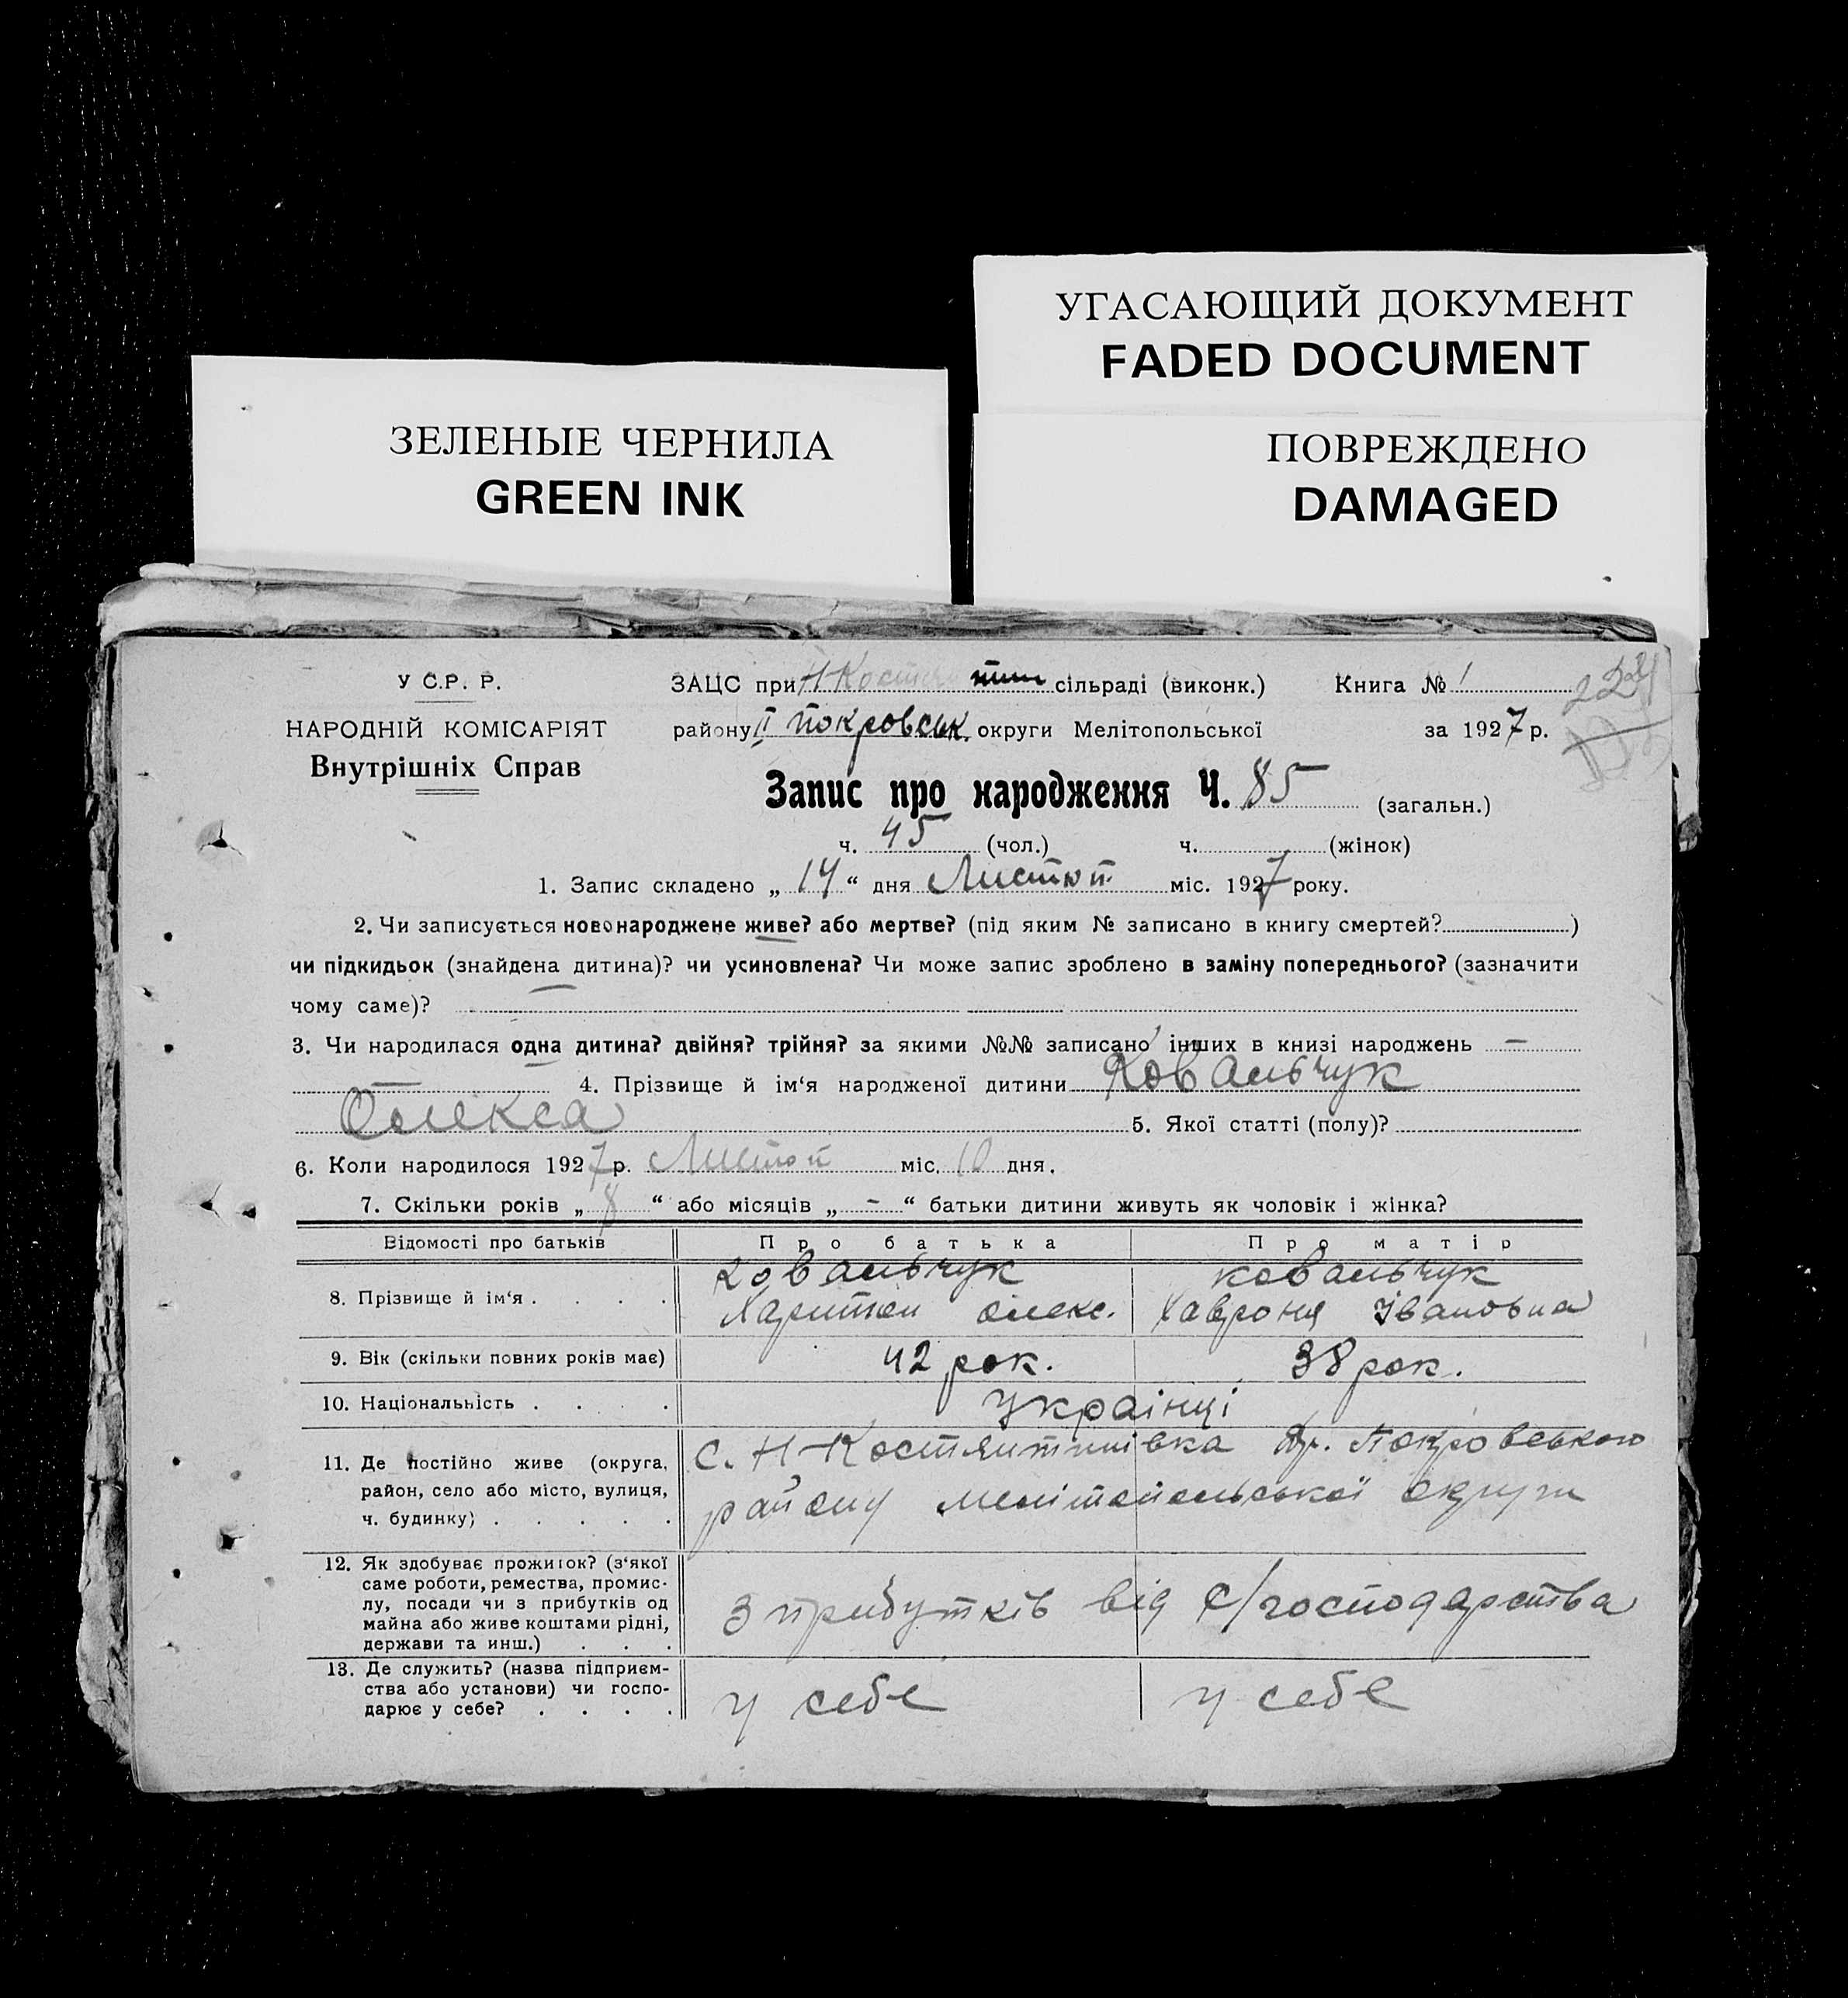 УГАСАЮЩИЙ ДОКУМЕНТ
FADED DOCUMENT
ЗЕЛЕНЫЕ ЧЕРНИЛА
GREEN INK
ПОВРЕЖДЕНО
DAMAGED
У С.Р. Р.
НАРОДНІЙ КОМІСАРІЯТ
Внутрішніх Справ
ЗАЦС при Н Костянтин сільраді (виконк.) Книга № 1
району ІІ Покровськ. округи Мелітопольської за 1927 р.
Запис про народження Ч. 85 (загальн.)
ч. 45 (чол.) ч. (жінок)
1. Запис складено „ 14 “ дня Листоп. міс. 1927 року.
2. Чи записується новонароджене живе? або мертве? (під яким № записано в книгу смертей? )
чи підкидьок (знайдена дитина)? чи усиновлена? Чи може запис зроблено в заміну попереднього? (зазначити
чому саме)?
3. Чи народилася одна дитина? двійня? трійня? за якими №№ записано інших в книзі народжень —
4. Прізвище й ім‘я народженої дитини Ковальчук
Олекса 5. Якої статті (полу)?
6. Коли народилося 1927 р. Листоп міс. 10 дня.
7. Скільки років „ 8 “ або місяців „ - “ батьки дитини живуть як чоловік і жінка?
Відомості про батьків Про батька Про матір
8. Прізвище й ім‘я . . . . Ковальчук Харитон Олекс. Ковальчук Хавроня Івановна
9. Вік (скільки повних років має) 42 рок. 38 рок.
10. Національність . . . . Українці
11. Де постійно живе (округа, район, село або місто, вулиця, ч. будинку) . . . . . с. Н-Костянтинівка Покровського району Мелітопольської округи
12. Як здобуває прожиток? (з‘якої саме роботи, ремества, промислу, посади чи з прибутків од майна або живе коштами рідні, держави та инш.) . . . З прибутків від с/господарства
13. Де служить? (назва підприємства або установи) чи господарює у себе? . . . . у себе у себе